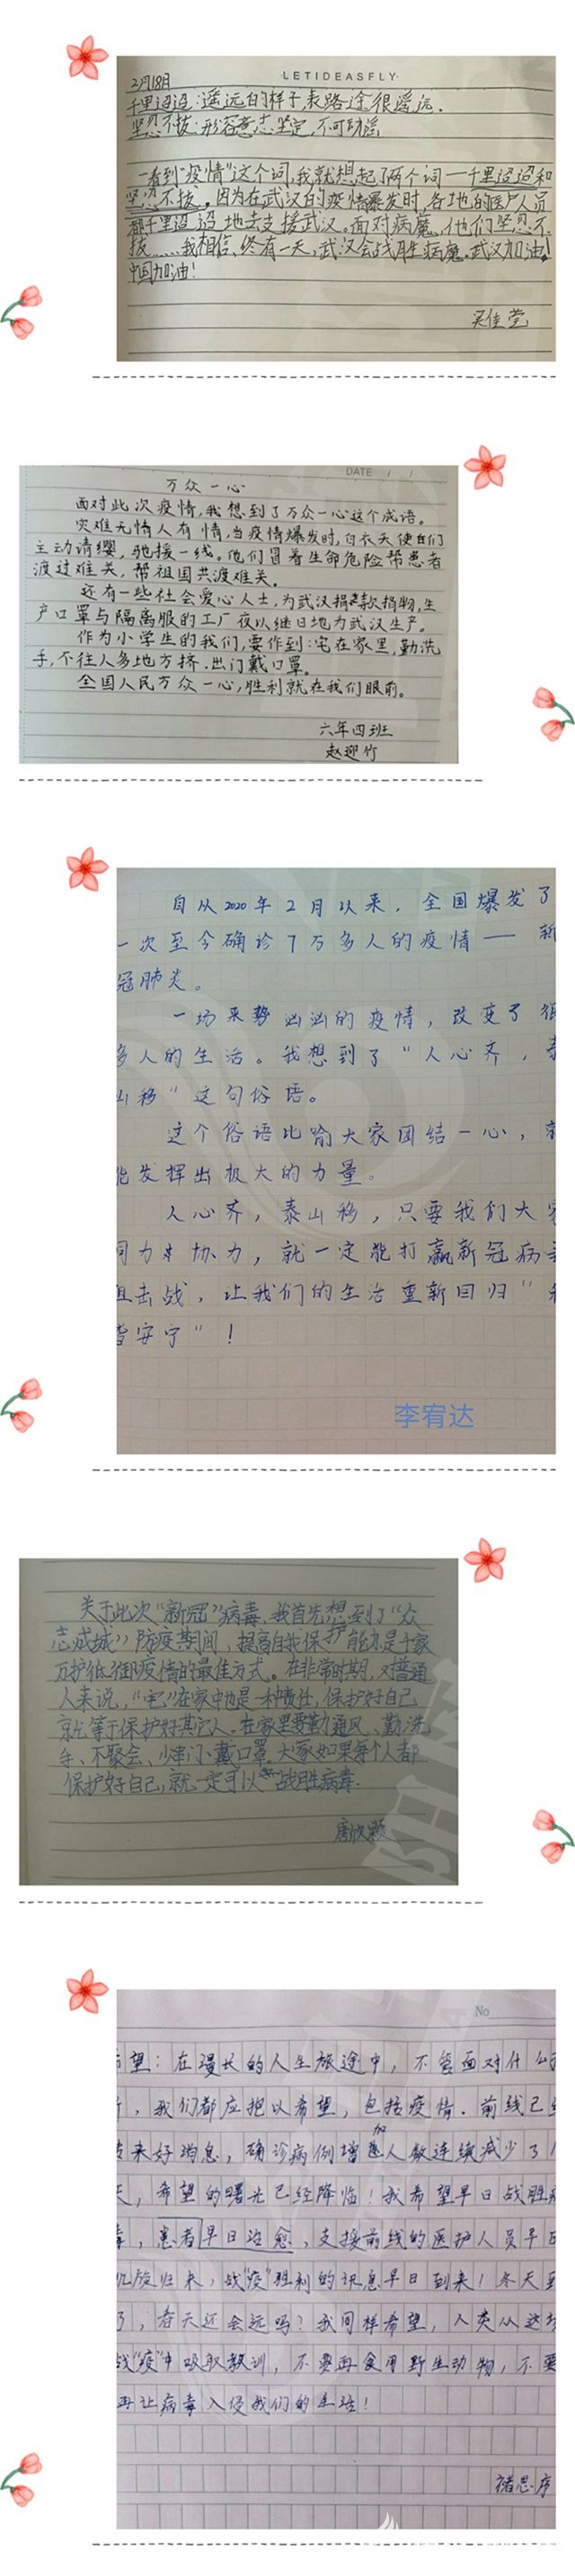 2月18日
·LETIDEASFLY·
千里迢迢:遥远的样子,表路途很遥远.
坚忍不拔:形容意志坚定,不可动摇
一看到"疫情"这个词,我就想起了两个词一千里迢迢和
坚忍不拔。因为在武汉的疫情爆发时,各地的医护人员
都千里迢迢地去支援武汉。面对病魔,他们坚忍不
拔……我相信,终有一天,武汉会战胜病魔.武汉加油!
中国加油!
吴佳莹
DATE / /
万众一心
面对此次疫情,我想到了万众一心这个成语。
灾难无情人有情,当疫情爆发时,白衣天使们
主动请缨,驰援一线。他们冒着生命危险帮患者
渡过难关,帮祖国共渡难关。
还有一些社会爱心人士,为武汉捐款捐物,生
产口罩与隔离服的工厂夜以继日地为武汉生产。
作为小学生的我们,要作到:宅在家里,勤洗
手,不往人多地方挤.出门戴口罩。
全国人民万众一心,胜利就在我们眼前。
六年四班
赵迎竹
自从2020年2月以来,全国爆发了
一次至今确诊7万多人的疫情——新
冠肺炎。
一场来势汹汹的疫情,改变了很
多人的生活。我想到了"人心齐,泰
山移"这句俗语。
这个俗语比喻大家团结一心,就
能发挥出极大的力量。
人心齐,泰山移,只要我们大家
同力协力,就一定能打赢新冠病毒
阻击战,让我们的生活重新回归"
皆安宁"!
李宥达
关于此次"新冠"病毒,我首先想到了"众
志成城"防疫期间,提高自我保护能力是千家
万护低御疫情的最佳方式。在非常时期,对普通
人来说,"宅"在家中也是一种责任,保护好自己
就等于保护好其它人。在家里要勤通风、勤洗
手、不聚会、少串门、戴口罩。大家如果每个人都
保护好自己,就一定可以战胜病毒.
唐欣颖
No
希望:在漫长的人生旅途中,不管面对什么
,我们都应抱以希望,包括疫情.前线已经
传来好消息,确诊病例增加人数连续减少了
天,希望的曙光已经降临!我希望早日战胜病
毒,患者早日治愈,支援前线的医护人员早日
凯旋归来,战"疫"胜利的讯息早日到来!冬天到
了,春天还会远吗?我同样希望,人类从这场
战"疫"中吸取教训,不要再食用野生动物,不要
再让病毒入侵我们的生活!
褚思序